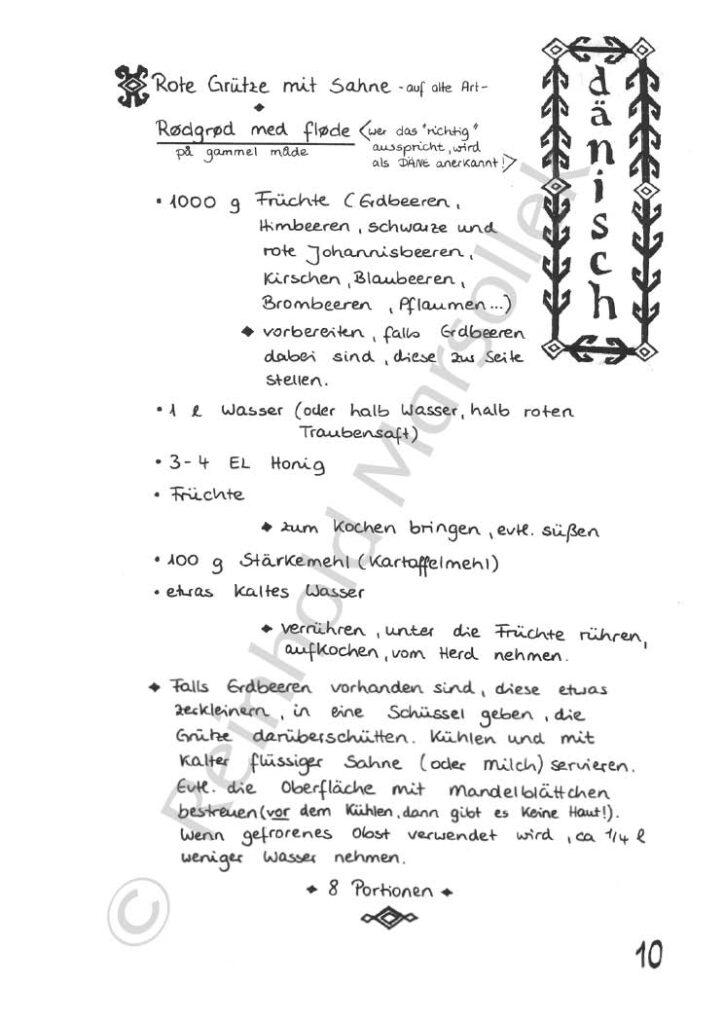 Rote Grütze mit Sahne - auf alte Art -
Rødgrød med fløde <wer das "richtig"
ausspricht, wird
als DÄNE anerkannt!>
på gammel måde
dänisch
• 1000 g Früchte (Erdbeeren,
Himbeeren, schwarze und
rote Johannisbeeren,
Kirschen, Blaubeeren,
Brombeeren, Pflaumen...)
◆ vorbereiten, falls Erdbeeren
dabei sind, diese zur Seite
stellen.
• 1 l Wasser (oder halb Wasser, halb roten
Traubensaft)
• 3-4 EL Honig
• Früchte
◆ zum Kochen bringen, evtl. süßen
• 100 g Stärkemehl (Kartoffelmehl)
• etwas kaltes Wasser
◆ verrühren, unter die Früchte rühren,
aufkochen, vom Herd nehmen.
◆ Falls Erdbeeren vorhanden sind, diese etwas
zerkleinern, in eine Schüssel geben, die
Grütze darüberschütten. Kühlen und mit
kalter flüssiger Sahne (oder Milch) servieren.
Evtl. die Oberfläche mit Mandelblättchen
bestreuen (vor dem Kühlen, dann gibt es keine Haut!).
Wenn gefrorenes Obst verwendet wird, ca 1/4 l
weniger Wasser nehmen.
◆ 8 Portionen ◆
© Reinhold Marsollek
10